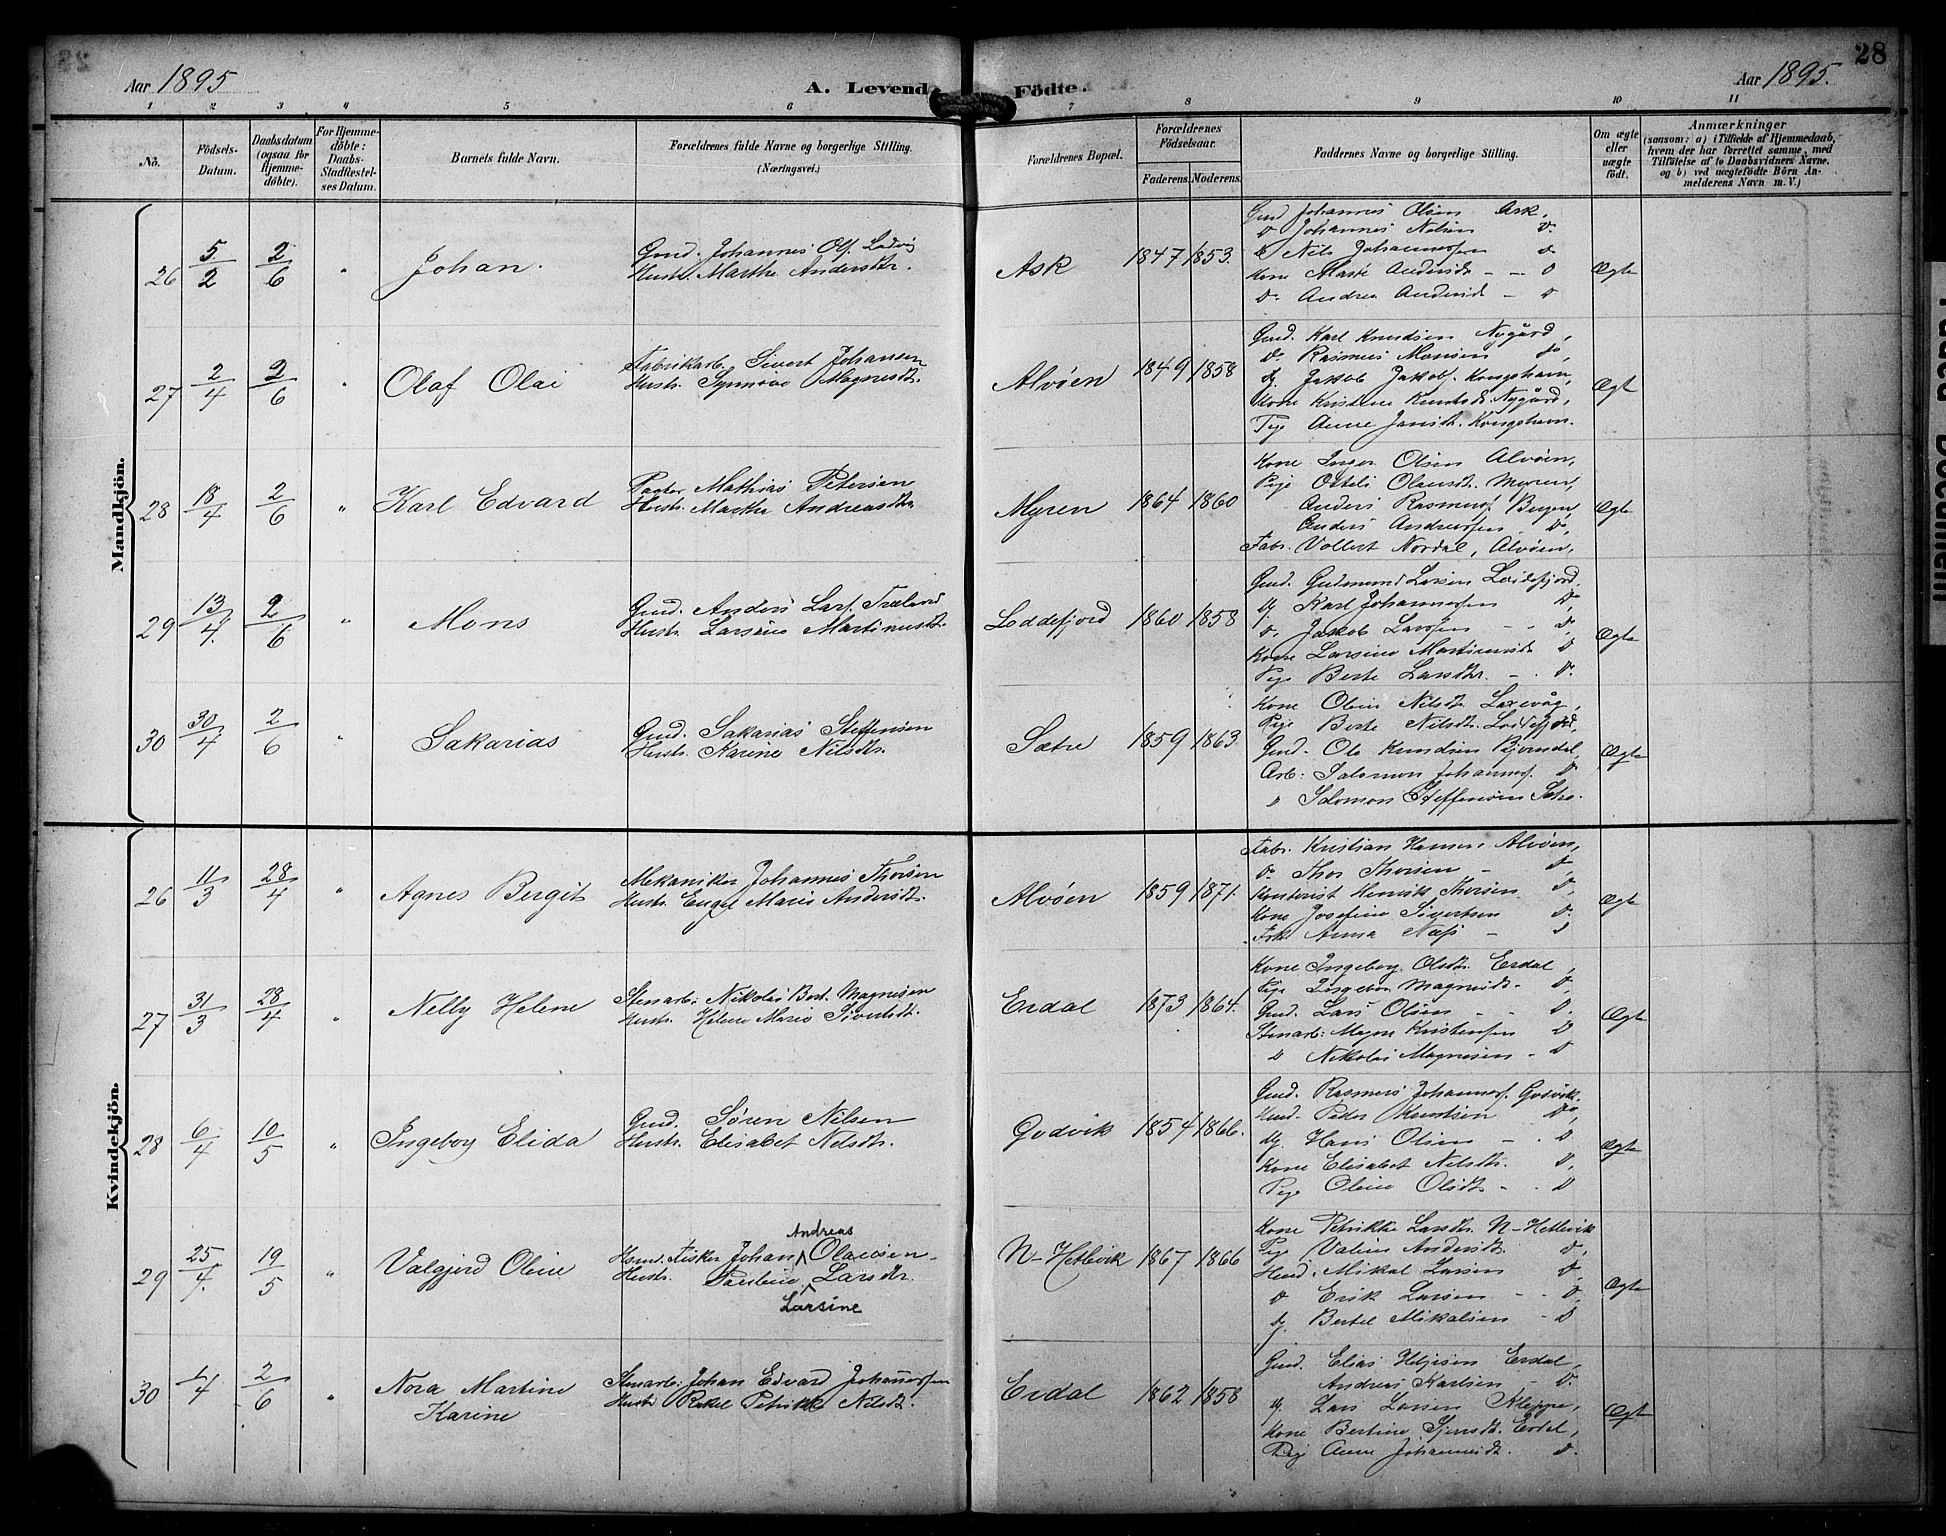 28
Aar 1895
A. Levende Födte.
Aar 1895.
1 2 3 4 5 6 7 8 9 10 11
No. Födsels-Datum. Daabsdatum (ogsaa for Hjemme-döbte). For Hjemme-döbte: Daabs-Stadfæstel-ses Datum. Barnets fulde Navn. Forældrenes fulde Navne og borgerlige Stilling. (Næringsvei.) Forældrenes Bopæl. Forældrenes Födselsaar. Faderens. Moderens. Faddernes Navne og borgerlige Stilling. Om ægte eller uægte födt. Anmærkninger (saasom: a) i Tilfælde af Hjemmedaab, hvem der har forrettet samme, med Tilföielse af to Daabsvidners Navne, og b) ved uægtefödte Börn An-melderens Navn m. V.)
Mandkjön.
26 5/2 2/6 " Johan.
Gmd. Johannes Ols.
Hustr. Marthe Andersdtr.
Ask 1847 1853.
Gmd Johannes Olsen Ask,
D Johannes Nilsen D.
Nils Johannessen D
Kone Marte Andersdt - - D
Do. Andrea Andersdt - D
Ægte
27 2/4 2/6 " Olaf Olai
Fabrikarb. Sivert Johansen
Hustr. Synnøve Magnesdt.
Alvøen 1849 1858
Gmd. Karl Knudsen Nygård,
Do. Rasmus Monsen Do,
Jakob Jakobs. Kongshavn,
Kone Kristine Knutsdt. Nygård,
Pige Anne Jansdt. Kongshavn.
Ægte
28 18/4 2/6 " Karl Edvard
Mathias Petersen
Hustr. Marthe Andreasdtr
Myren 1864 1860
Kone Inger Olsen Alvøen,
Pige Olausdt. Myren,
Anders Rasmuss. Bergen,
Anders Andreassen Do,
Fabr. Volbert Nordal, Alvøen,
Ægte
29 13/4. 2/6 " Mons
Gmd. Anders Lars.
Hustr. Larsine Martinusdt.
Loddefjord 1860 1858
Gmd. Gudmund Larsen Loddefjord.
Karl Johannessen D,
Do. Jakob Larssen - - D,
Kone Larsine Martinusdt D
Pige Berte Larsdtr. - . D.
Ægte
30 30/4. 2/6 " Sakarias
Gmd. Sakarias Steffensen
Hustr. Karine Nilsdtr.
Sætre 1859 1863
Kone Oline Nilsdt. Laxevåg,
Pige Berte Nilsdt. Loddefjord,
Gmd. Ole Knudsen Bjørndal,
Arb: Salomon Johannes. D
D Salomon Steffensen Sætre.
Ægte
Kvindekjön.
26 11/3 28/4 " Agnes Bergit
Mekaniker Johannes Thorsen
Hustr. Engel Marie Andersdt.
Alvøen 1859 1871.
Fabr. Kristian Hansen Alvøen,
Do. Thor Thorsen - D,
Kontorist Henrik Thorsen D,
Kone Josefine Sivertsen D.
Frk. Anna Næss - D
Ægte
27 31/3 28/4 " Nelly Helene
Stenarb: Nikolai Magnusen
Hustr. Helene Marie Sivertsdt.
Erdal 1873 1864.
Kone Ingeborg Olsdtr. Erdal,
Pige Ingebor Magnusdt. D
Gmd. Lars Olsen - - D.
Stenarb: Kristensen D,
D Nikolai Magnusen - D
Ægte
28 6/4 10/5 " Ingeborg Elida
Gmd. Søren Nilsen
Hustr. Elisabet Nilsdtr.
Godvik 1854 1866.
Gmd. Rasmus Johanness. Godvik.
Peder Knutsen Do,
Hans Olsen - - D
Kone Elisabet Nilsdtr. D,
Pige Oline Olsdt. - . D
Ægte
29 25/4. 19/5 " Valgjerd Oline
Andreas
Hsmd. Fisker Johan Olaisen -
Hustr. Pauline Larsdtr.
Larsine
N-Hetlevik 1867 1866
Kone Petrikke Larsdtr. N-Hetlevik
Pige Valine Andersdt. D,
Mikal Larsen D,
D Erik Larsen - - D,
Bertel Mikalsen - D
Ægte
30 1/4 2/6 " Nora Martine
Karine
Stenarb: Johan Edvard Johannessen
Hustr. Rakel Petrikke Nilsdt.
Erdal 1862 1858
Gmd. Elias Erdal,
Andreas Karlsen - D.
Lars Larsen Kleppe,
Kone Bertine Erdal,
Pige Anne Johannesdt. D.
Ægte